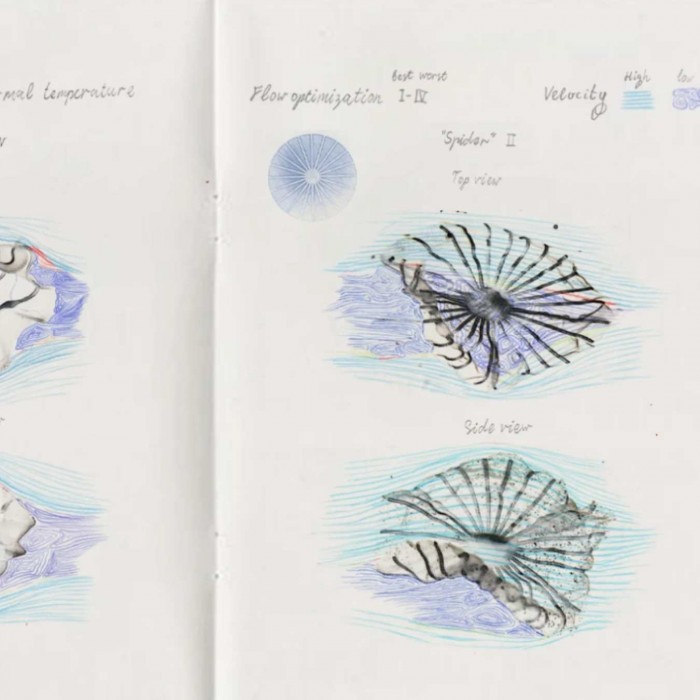 mal temperature
Flow optimization
Best worst
I-IV
Velocity
High
low
"Spider" II
Top view
Side view